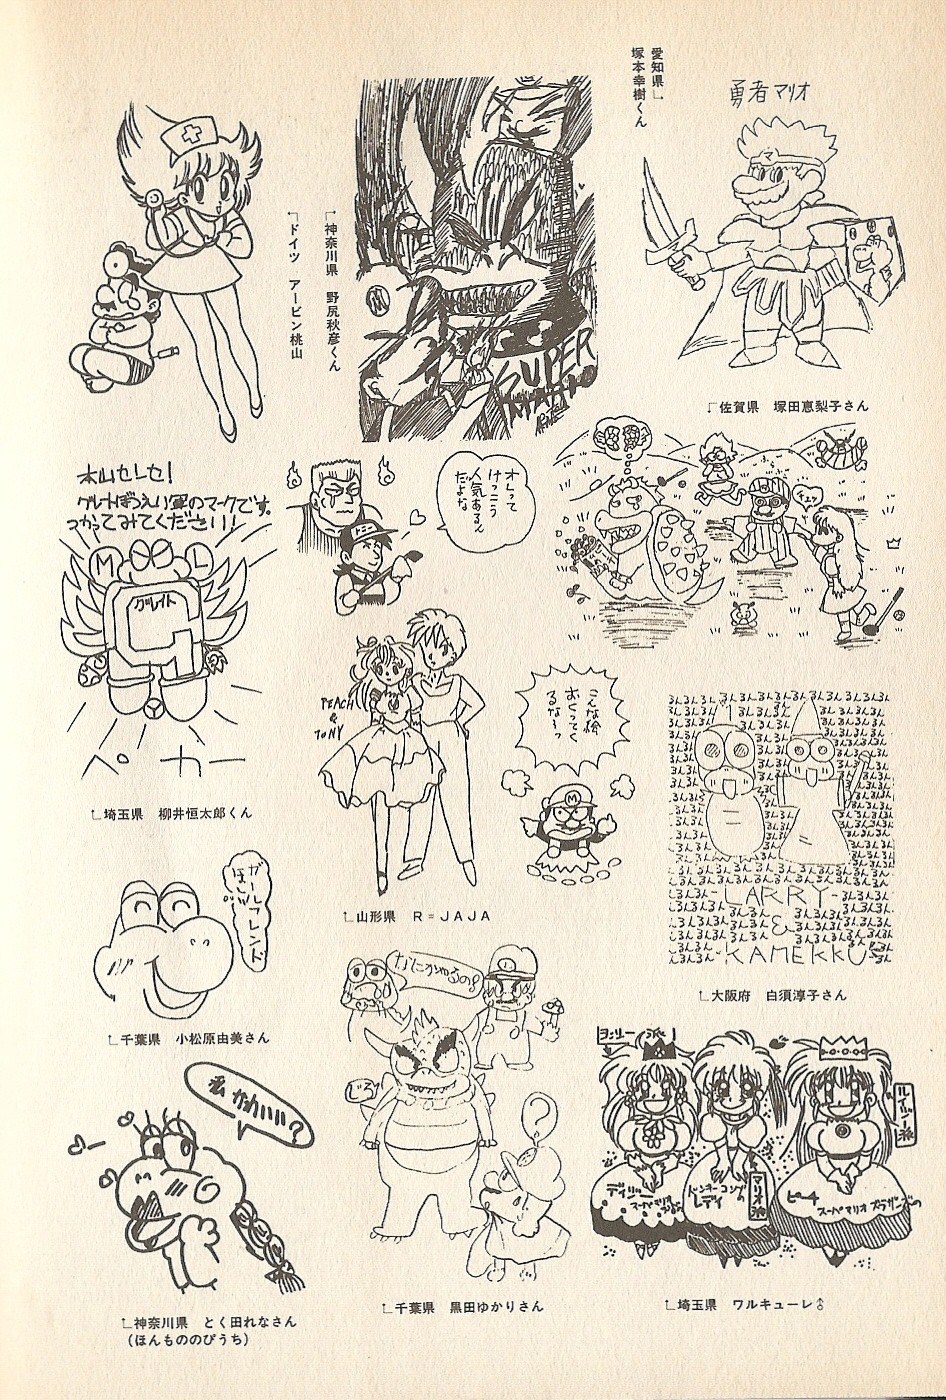 愛知県
塚本幸樹くん
勇者マリオ
マ
「佐賀県　塚田恵梨子さん
「神奈川県　野尻秋彦くん
「ドイツ　アービン桃山
M
SUPER
MARIO
本山センセ！
グレートぼうえい軍のマークです。
つかってみてください!!
M
L
グレイト
G
ペカー
埼玉県　柳井恒太郎くん
オレって
けっこう
人気あるん
だよな
トニー
チュッ
PEACH
&
TONY
こんな絵
おくってく
るな〜っ
M
山形県　R＝JAJA
LARRY
&
KAMEKKU
大阪府　白須淳子さん
ガールフレンド
ほしい
千葉県　小松原由美さん
私かわいい?
神奈川県　とく田れなさん
（ほんもののぴうち）
なにかゆるのの?
千葉県　黒田ゆかりさん
ヨッシー派
ルイージ派
マリオ派
デイジー
スーパーマリオ
ドンキーコングの
レディ
ピーチ
スーパーマリオブラザーズの
埼玉県　ワルキューレ♂